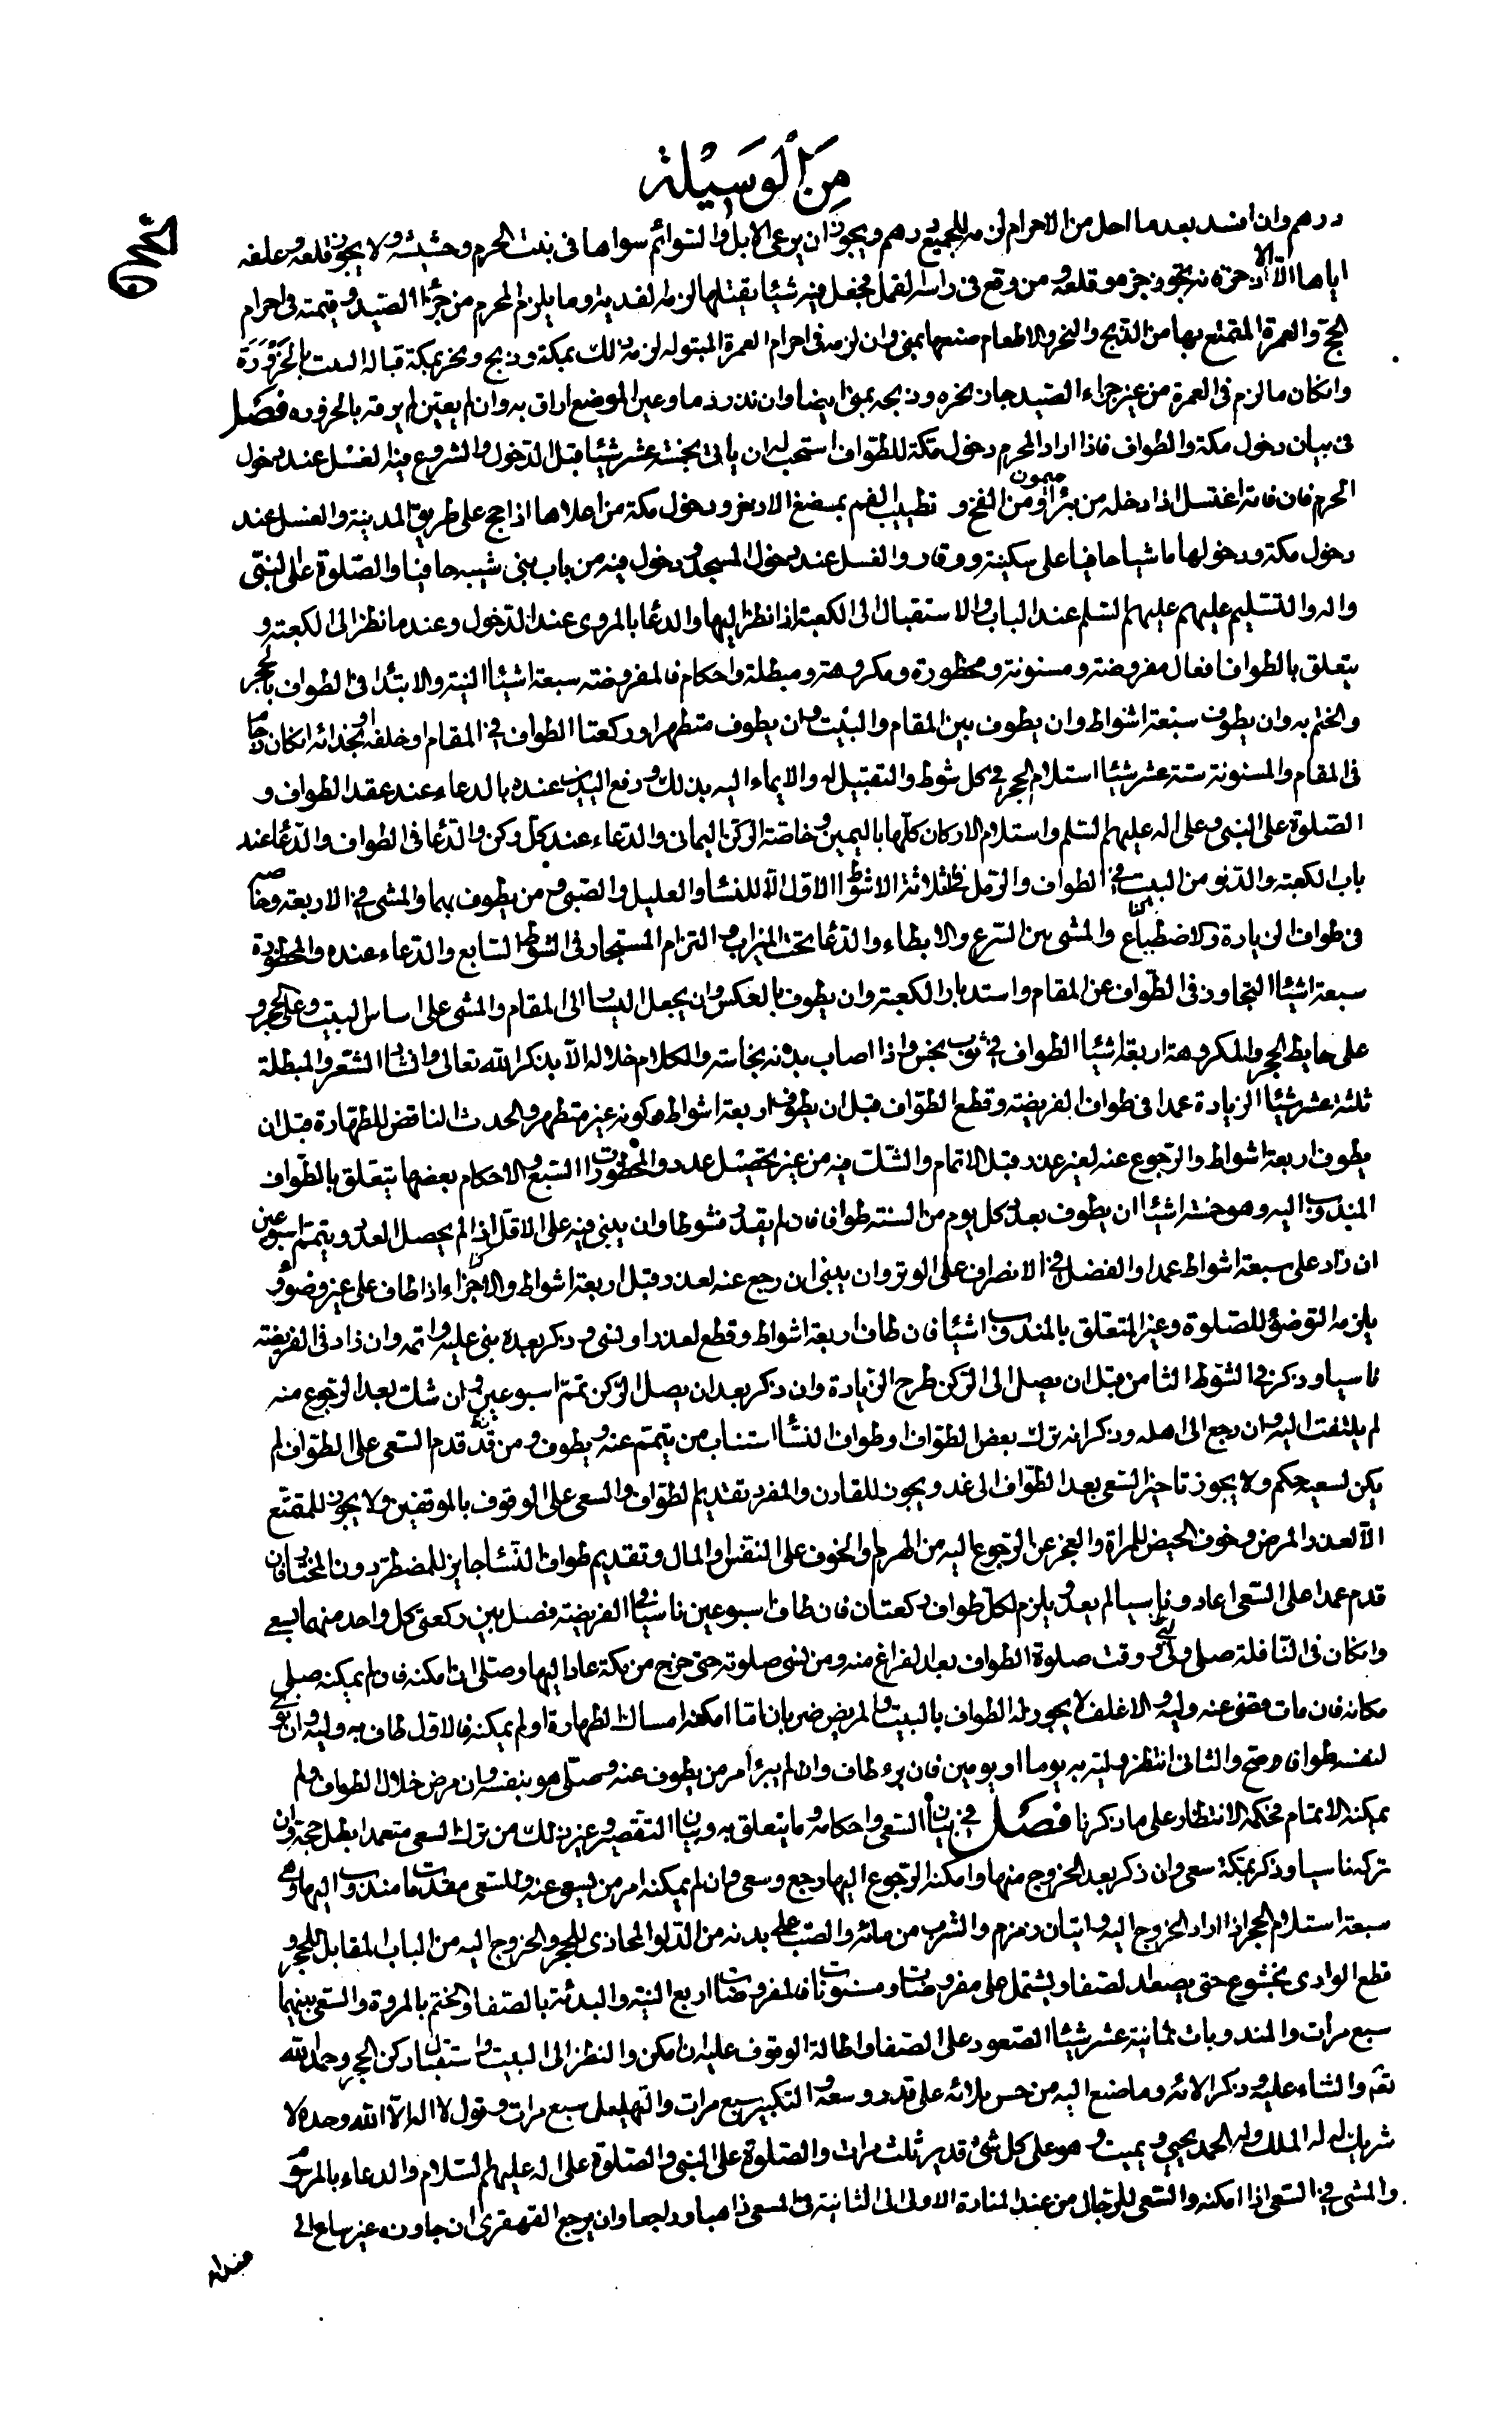 مِنَ الْوَسِيْلَة
درهم وان افسد بعد ما احل من الاحرام لزمه للجميع درهم ويجوز ان يرعى الابل والتوائم سواها فى نبت الحرم وحشيشه ولا يجوز قلعه وعلفه
اياها الا الاذخر فانه يجوز جزه وقلعه ومن وقع فى راسه القمل فجعل فيه شيئا يقتلها لزمه الفدية وما يلزم المحرم من جزاء الصيد وقيمته فى احرام
الحج والعمرة المتمتع بها من الذبح والنحر والاطعام صنعها بمنى وان لزمه فى احرام العمرة المبتولة لزمه ذلك بمكة وذبح ونحر بمكة قبالة البيت بالحَزْوَرَة
وان كان ما لزم فى العمرة من غير جزاء الصيد جاز نحره وذبحه بمنى ايضا وان نذر دما وعين الموضع اراق به وان لم يعين لم يرقه بالحزورة فصل
فى بيان دخول مكة والطواف فاذا اراد المحرم دخول مكة للطواف استحب له ان ياتى بخمسة عشر شيئا قبل الدخول والشروع فيه الغسل عند دخول
الحرم فان فاته اغتسل اذا دخله من بئر ميمون او من الفخ و تطييب الفم بمضغ الاذخر ودخول مكة من اعلاها اذا حج على طريق المدينة والغسل عند
دخول مكة ودخولها ماشيا حافيا على سكينة ووقار والغسل عند دخول المسجد ودخول فيه من باب بنى شيبه حافيا والصلوة على النبى
واله والتسليم عليهم عليهم السلم عند الباب والاستقبال الى الكعبة اذا نظر اليها والدعا بالمروى عند الدخول وعند ما نظر الى الكعبة و
يتعلق بالطواف افعال مفروضة ومسنونة ومحظورة ومكروهة ومبطلة واحكام فالمفروضة سبعة اشيئا النية والابتدا فى الطواف بالحجر
والختم به وان يطوف سبعة اشواط وان يطوف بين المقام والبيت وان يطوف متطهرا وركعتا الطواف فى المقام او خلفه او بحذائه ان كان زحاما
فى المقام والمسنونة ستة عشر شيئا استلام الحجر فى كل شوط والتقبيل له والايماء اليه بذلك ورفع اليدين عنده بالدعاء عند عقد الطواف و
الصلوة على النبى وعلى اله عليهم السلم واستلام الاركان كلها باليمين وخاصة الركن اليمانى والدعاء عند كل ركن والدعا فى الطواف والدعا عند
باب الكعبة والدنو من البيت فى الطواف والرمل فى الثلاثة الاشواط الاول الا للنسا والعليل والصبى ومن يطوف بهما والمشى فى الاربعة وخاصه
فى طواف الزيارة والاضطباع والمشى بين السرع والابطاء والدعا تحت الميزاب والتزام المستجار فى الشوط السابع والدعاء عنده والمحظورة
سبعة اشيئا التجاوز فى الطواف عن المقام واستدبار الكعبة وان يطوف بالعكس وان يجعل اليسار الى المقام والمشى على اساس البيت وعلى الحجر و
على حايط الحجر والمكروهة اربعة اشيئا الطواف فى ثوب نجس واذا اصاب بدنه نجاسة والكلام خلاله الا بذكر الله تعالى وانشاد الشعر والمبطلة
ثلثة عشر شيئا الزيادة عمدا فى طواف الفريضة وقطع الطواف قبل ان يطوف اربعة اشواط وكونه غير متطهر والحدث الناقض للطهارة قبل ان
يطوف اربعة اشواط والرجوع عنه لغير عذر قبل الاتمام والشك فيه من غير تحصيل عدد والمحظورات السبع والاحكام بعضها يتعلق بالطواف
المندوب اليه وهو خمسة اشيئا ان يطوف بعدد كل يوم من السنة طوافا فان لم يقدر فشوطا وان يبنى فيه على الاقل اذا لم يحصل العدد ويتمم اسبوعين
ان زاد على سبعة اشواط عمدا والفضل فى الانصراف على الوتر وان يبنى ان رجع عنه لعذر قبل اربعة اشواط والاجزاء اذا طاف على غير وضوء و
يلزمه التوضؤ للصلوة وغير المتعلق بالمندوب اشيئا فان طاف اربعة اشواط وقطع لعذر او نسى وذكر بعده بنى عليه واتمه وان زاد فى الفريضة
ناسيا وذكر فى الشوط الثامن قبل ان يصل الى الركن طرح الزيادة وان ذكر بعد ان يصل الركن تمم اسبوعين وان شك بعد الرجوع منه
لم يلتفت اليه وان رجع الى اهله وذكر انه ترك بعض الطواف او طواف النسا استناب من يتمم عنه ويطوف ومن قدم السعى على الطواف لم
يكن لسعيه حكم ولا يجوز تاخير السعى بعد الطواف الى غد ويجوز للقارن والمفرد تقديم الطواف والسعى على الوقوف بالموقفين ولا يجوز للمتمتع
الا لعذر المرض وخوف الحيض للمراة والعجز عن الرجوع اليه من الهرم والخوف على النفس والمال وتقديم طواف النسا جايز للمضطر دون المختار فان
قدم عمدا على السعى اعاد وناسيا لم يعد ويلزم لكل طواف ركعتان فان طاف اسبوعين ناسيا فى الفريضة فصل بين ركعتى كل واحد منهما بسعى
وان كان فى النافلة صلى ووقت صلوة الطواف بعد الفراغ منه ومن نسى صلوته حتى خرج من مكة عاد اليها وصلى ان امكنه فان لم يمكنه صلى
مكانه فان مات قضى عنه وليه والاغلف لا يجوز له الطواف بالبيت والمريض ضربان اما امكنه امساك الطهارة او لم يمكنه فالاول طاف به وليه وان نوى
لنفسه طوافا صح والثانى انتظر وليه به يوما او يومين فان برء طاف وان لم يبرأ امر من يطوف عنه وصلى هو بنفسه وان مرض خلال الطواف ولم
يمكنه الاتمام فحكمه الانتظار على ما ذكرنا فصل فى بيان السعى واحكامه وما يتعلق به وبيان التقصير وغير ذلك من ترك السعى متعمدا بطل حجه وان
تركه ناسيا وذكر بمكة سعى وان ذكر بعد الخروج منها وامكنه الرجوع اليها رجع وسعى وان لم يمكنه امر من يسعى عنه وللسعى مقدمات مندوب اليها وهى
سبعة استلام الحجر اذا اراد الخروج اليه واتيان زمزم والشرب من مائه والصب على بدنه من الدلو المحاذى للحجر والخروج اليه من الباب المقابل للحجر و
قطع الوادى بخشوع حتى يصعد الصفا ويشتمل على مفروضات ومسنونات فالمفروضات اربع النية والبدئة بالصفا والختم بالمروة والسعى بينهما
سبع مرات والمندوبات ثمانية عشر شيئا الصعود على الصفا واطالة الوقوف عليه ان امكن والنظر الى البيت واستقبال ركن الحجر وحمد الله
تعم والثناء عليه وذكر الائه وما صنع اليه من حسن بلائه على قدر وسعه والتكبير سبع مرات والتهليل سبع مرات وقول لا اله الا الله وحده لا
شريك له له الملك وله الحمد يحيى ويميت وهو على كل شئ قدير ثلث مرات والصلوة على النبى والصلوة على اله عليهم السلام والدعاء بالمروى
والمشى فى السعى اذا امكنه والسعى للرجال من عند المنارة الاولى الى الثانية فى المسعى ذاهبا وراجعا وان يرجع القهقرى ان جاوزه غير ساع الى